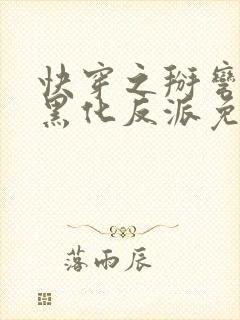 快穿之掰弯
黑化反派免
落雨辰